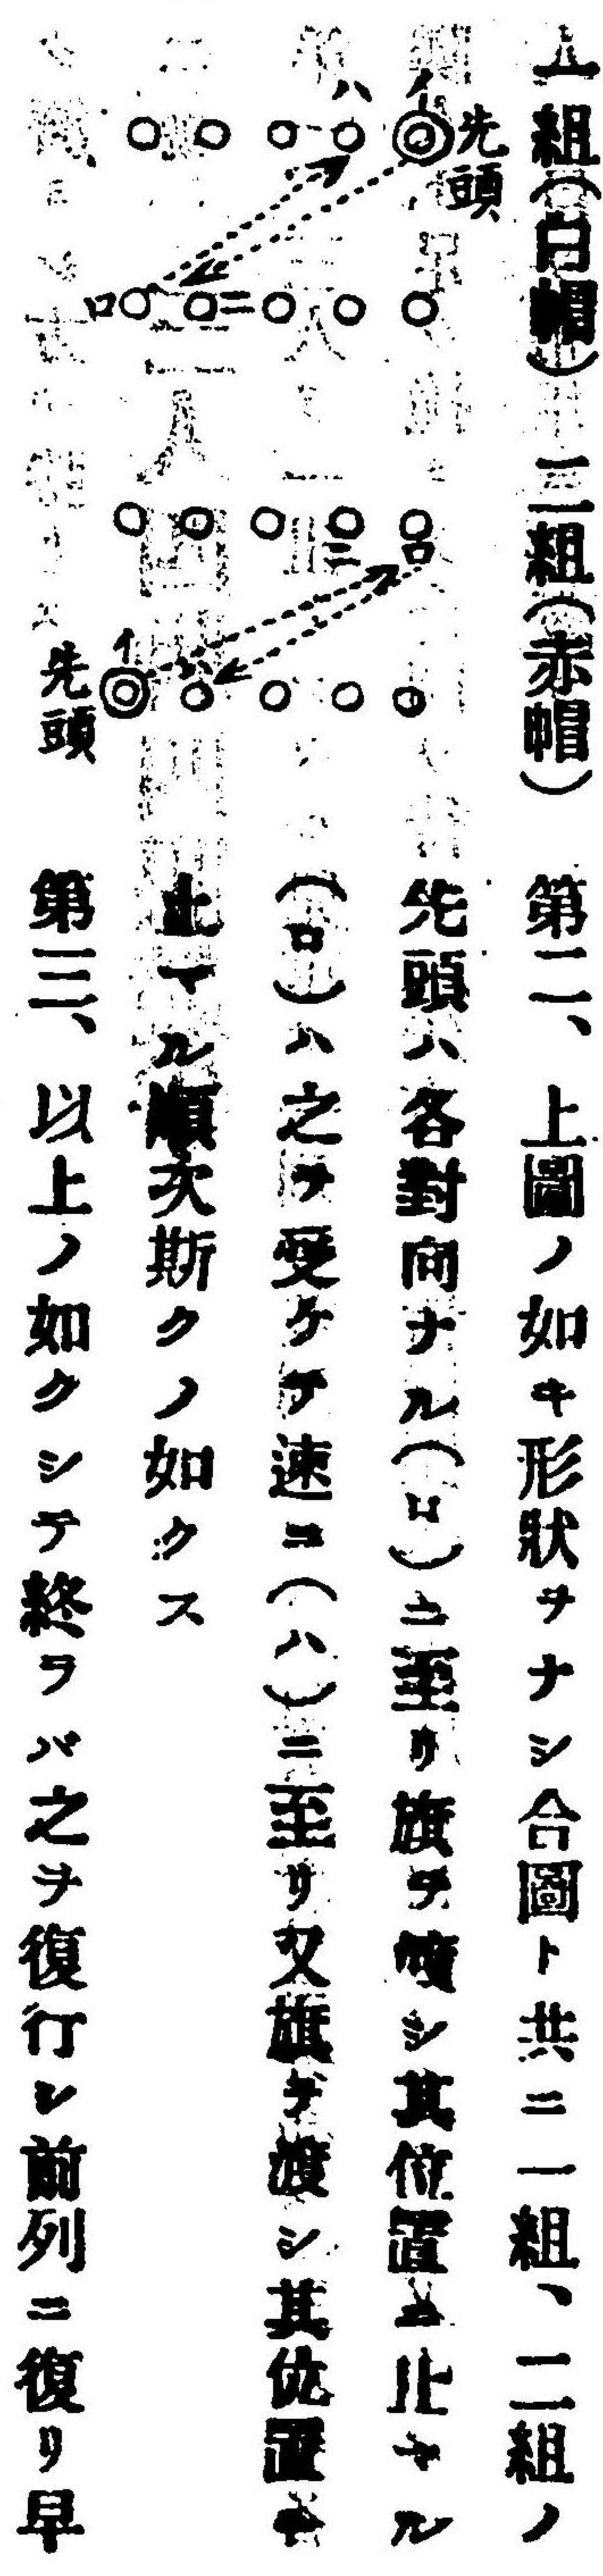 一組(白帽) 二組(赤帽) 第二、上圖ノ如キ形狀ヲナシ合圖ト共ニ一組、二組ノ
先頭ハ各對向ナル(ロ)ニ至リ旗ヲ渡シ其位置ニ止マル
(ロ)ハ之ヲ受ケテ速ニ(ハ)ニ至リ又旗ヲ渡シ其位置ニ
止マル順次斯クノ如クス
第三、以上ノ如クシテ終ラバ之ヲ復行シ前列ニ復リ早
先頭
イ
ハ
ロ
ニ
ロ
ニ
イ
ハ
先頭